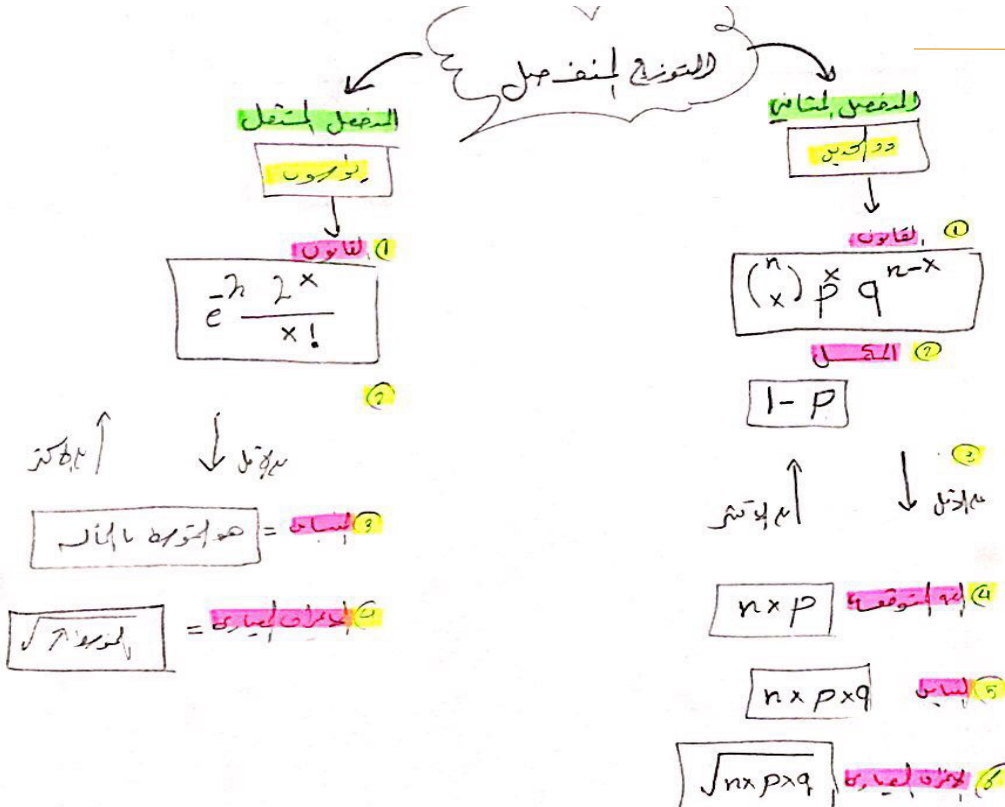 التوزيع المنفصل
المنفصل المتناهي
ذو الحدين
① القانون
(n x) p^x q^(n-x)
② المكمل
1 - P
③
على الأقل ↓ على الأكثر ↑
④ القيمة المتوقعة
n x p
⑤ التباين
n x p x q
⑥ الانحراف المعياري
√n x p x q
المنفصل
بواسون
① القانون
e^-λ λ^x / x!
②
على الأقل ↓ على الأكثر ↑
③ التباين = هو المتوسط
④ الانحراف المعياري =